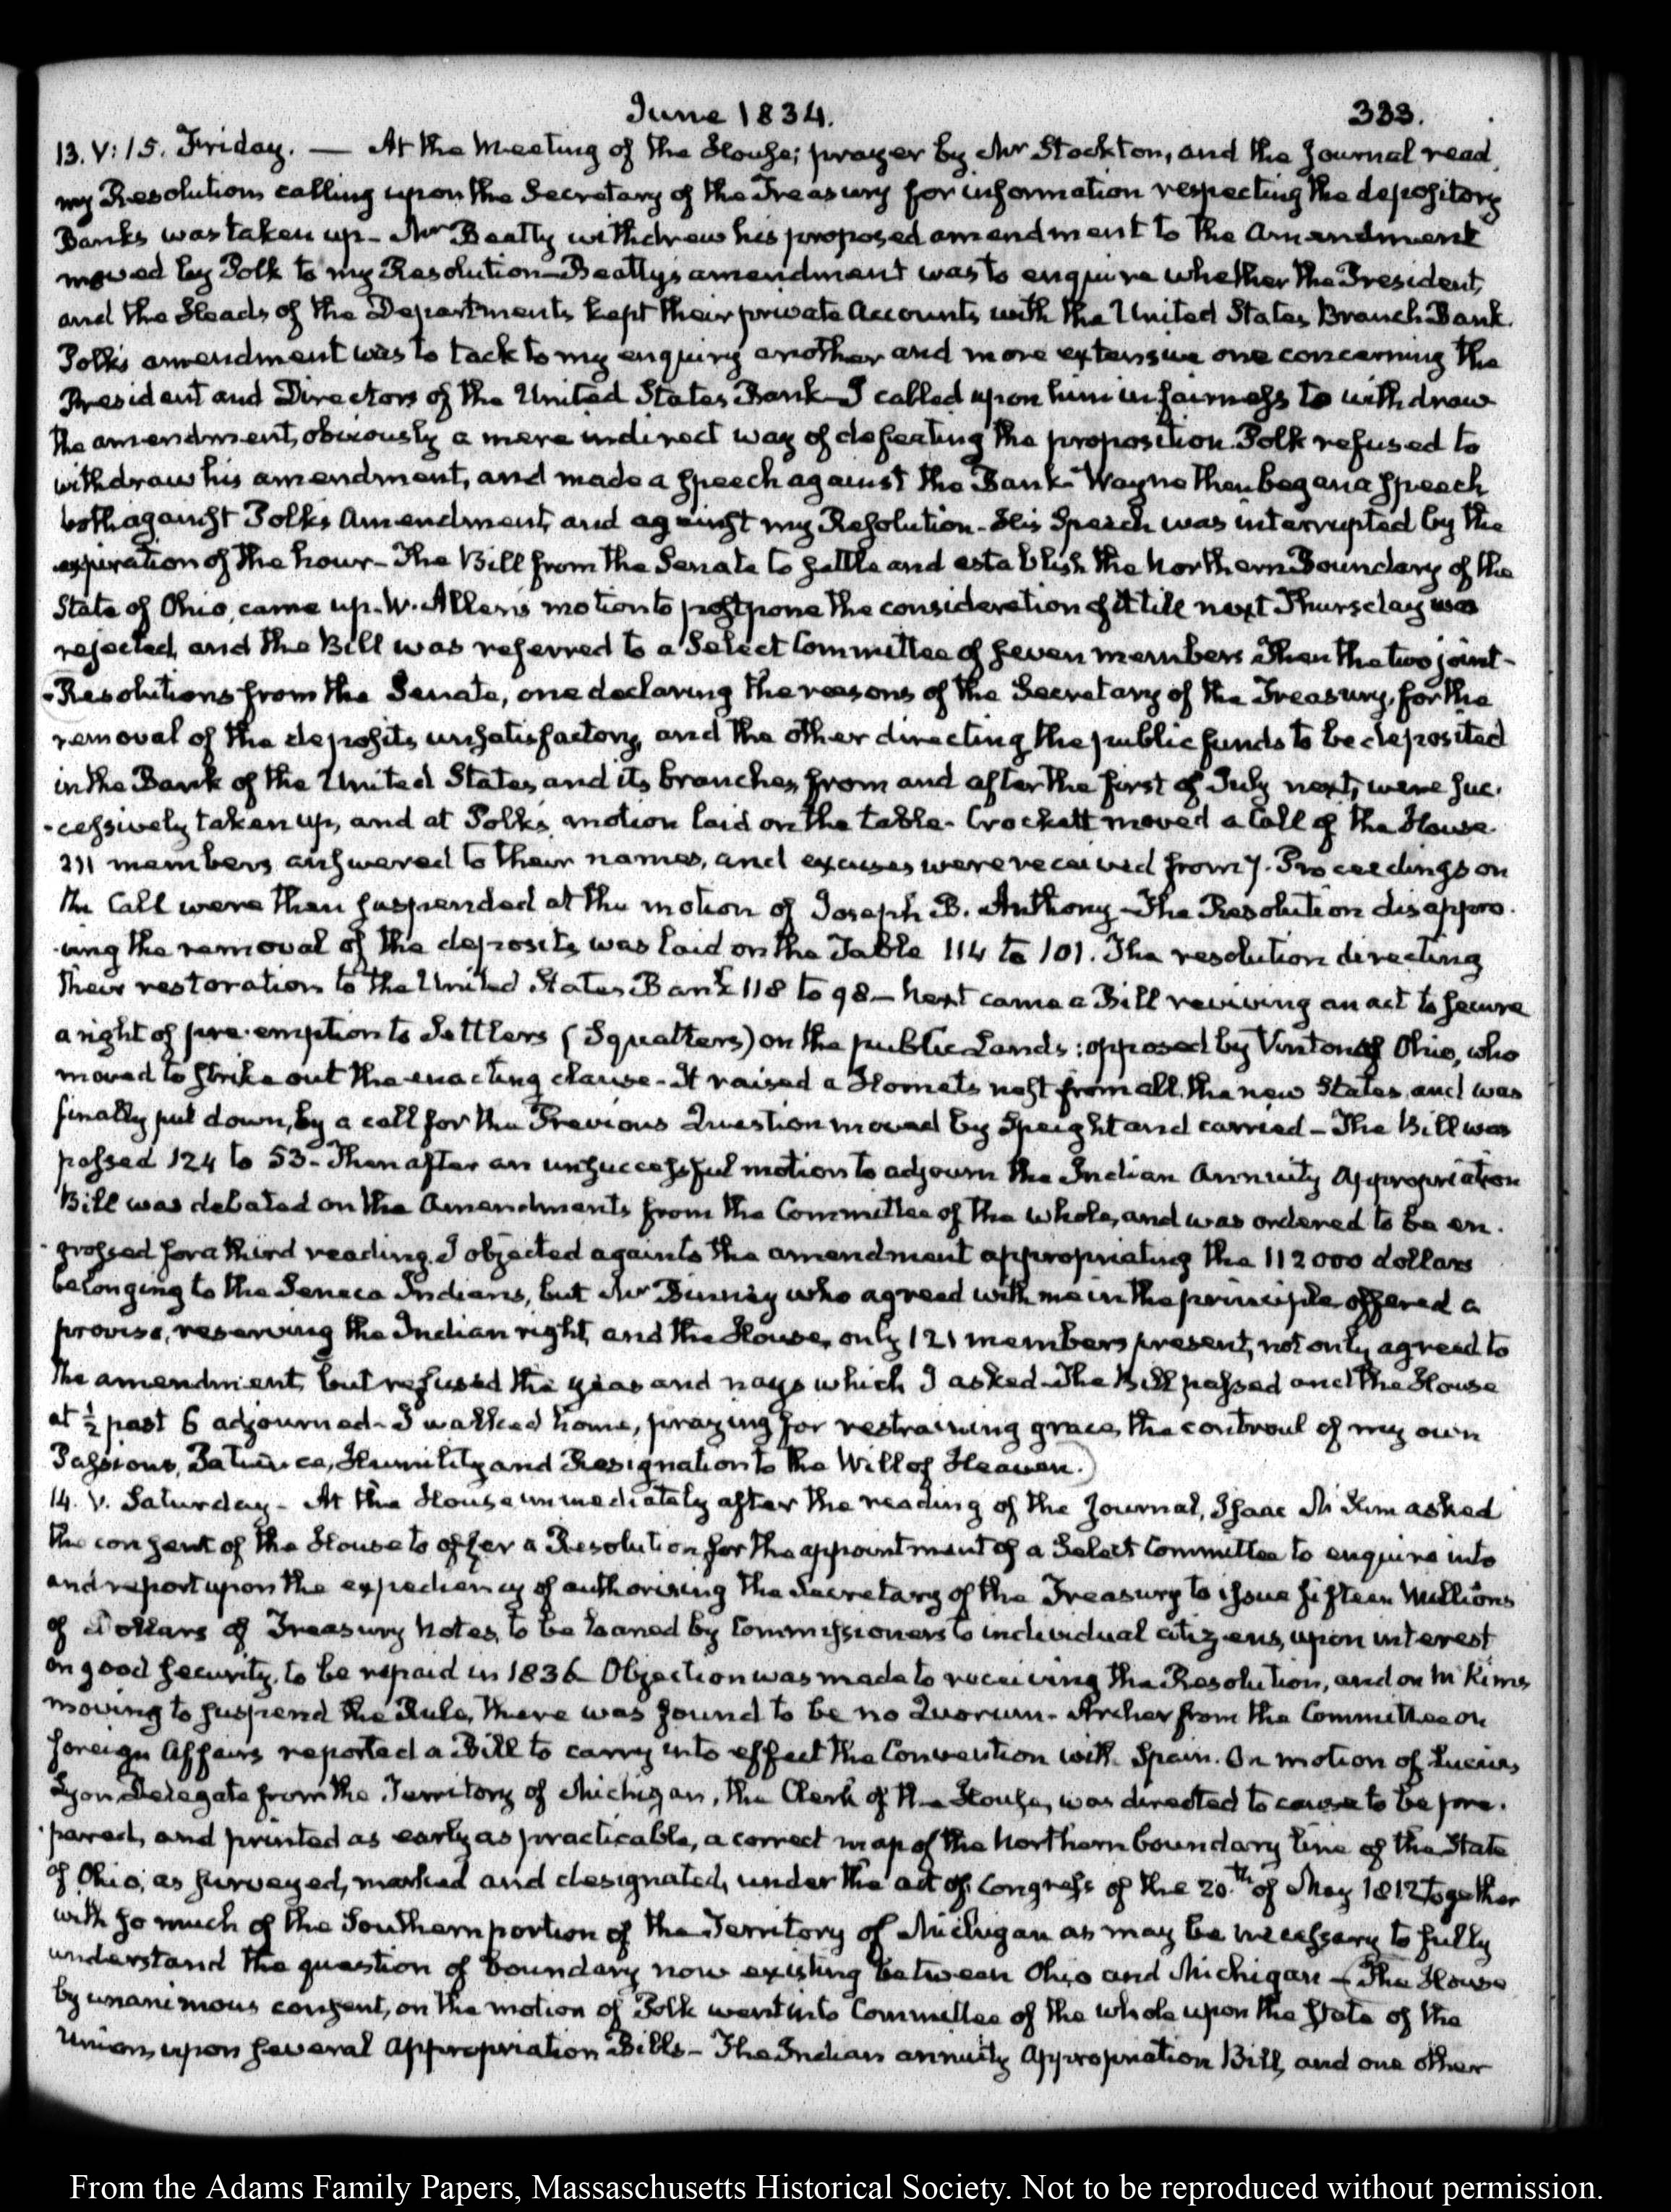 June 1834.
333.
13. V: 15. Friday. — At the Meeting of the House; prayer by Mr Stockton, and the Journal read,
my Resolution calling upon the Secretary of the Treasury for information respecting the depository
Banks was taken up - Mr Beatty withdrew his proposed amendment to the Amendment
moved by Polk to my Resolution - Beatty's amendment was to enquire whether the President,
and the Heads of the Departments kept their private Accounts with the United States Branch Bank.
Polk's amendment was to tack to my enquiry another and more extensive one concerning the
President and Directors of the United States Bank - I called upon him in fairness to withdraw
the amendment, obviously a mere indirect way of defeating the proposition. Polk refused to
withdraw his amendment, and made a speech against the Bank - Wayne then began a speech
both against Polk's Amendment, and against my Resolution - His Speech was interrupted by the
expiration of the hour - The Bill from the Senate to settle and establish the Northern Boundary of the
State of Ohio, came up - W. Allen's motion to postpone the consideration of it till next Thursday was
rejected, and the Bill was referred to a Select Committee of seven members. Then the two joint-
-Resolutions from the Senate, one declaring the reasons of the Secretary of the Treasury, for the
removal of the deposits unsatisfactory, and the other directing the public funds to be deposited
in the Bank of the United States, and its branches, from and after the first of July next, were suc-
-cessively taken up, and at Polk's motion laid on the table - Crockett moved a Call of the House
211 members answered to their names, and excuses were received from 7. Proceedings on
the Call were then suspended at the motion of Joseph B. Anthony - The Resolution disappro-
-ving the removal of the deposits was laid on the Table 114 to 101. The resolution directing
their restoration to the United States Bank 118 to 98 - Next came a Bill reviving an act to secure
a right of pre-emption to Settlers (Squatters) on the public Lands; opposed by Vinton of Ohio, who
moved to strike out the enacting clause - It raised a Hornets nest from all the new States and was
finally put down, by a call for the Previous Question moved by Speight and carried - The Bill was
passed 124 to 53 - Then after an unsuccessful motion to adjourn the Indian Annuity Appropriation
Bill was debated on the Amendments from the Committee of the whole, and was ordered to be en-
-grossed for a third reading. I objected against the amendment appropriating the 112 000 dollars
belonging to the Seneca Indians, but Mr Binney who agreed with me in the principle offered a
proviso, reserving the Indian right, and the House, only 121 members present, not only agreed to
the amendment, but refused the yeas and nays which I asked - The Bill passed and the House
at ½ past 6 adjourned - I walked home, praying for restraining grace, the controul of my own
Passions, Patience, Humility and Resignation to the Will of Heaven.)
14. V. Saturday - At the House immediately after the reading of the Journal, Isaac McKim asked
the consent of the House to offer a Resolution for the appointment of a Select Committee to enquire into
and report upon the expediency of authorising the Secretary of the Treasury to issue fifteen Millions
of Dollars of Treasury Notes, to be loaned by Commissioners to individual citizens, upon interest
on good security, to be repaid in 1836 - Objection was made to receiving the Resolution, and on McKim's
moving to suspend the Rule, there was found to be no Quorum - Archer from the Committee on
foreign Affairs reported a Bill to carry into effect the Convention with Spain. On motion of Lucius
Lyon Delegate from the Territory of Michigan, the Clerk of the House, was directed to cause to be pre-
-pared, and printed as early as practicable, a correct map of the Northern boundary line of the State
of Ohio, as surveyed, marked and designated, under the act of Congress of the 20th of May 1812 together
with so much of the Southern portion of the Territory of Michigan as may be necessary to fully
understand the question of boundary now existing between Ohio and Michigan - (The House
by unanimous consent, on the motion of Polk went into Committee of the whole upon the state of the
Union, upon several Appropriation Bills - The Indian annuity Appropriation Bill, and one other
From the Adams Family Papers, Massachusetts Historical Society. Not to be reproduced without permission.